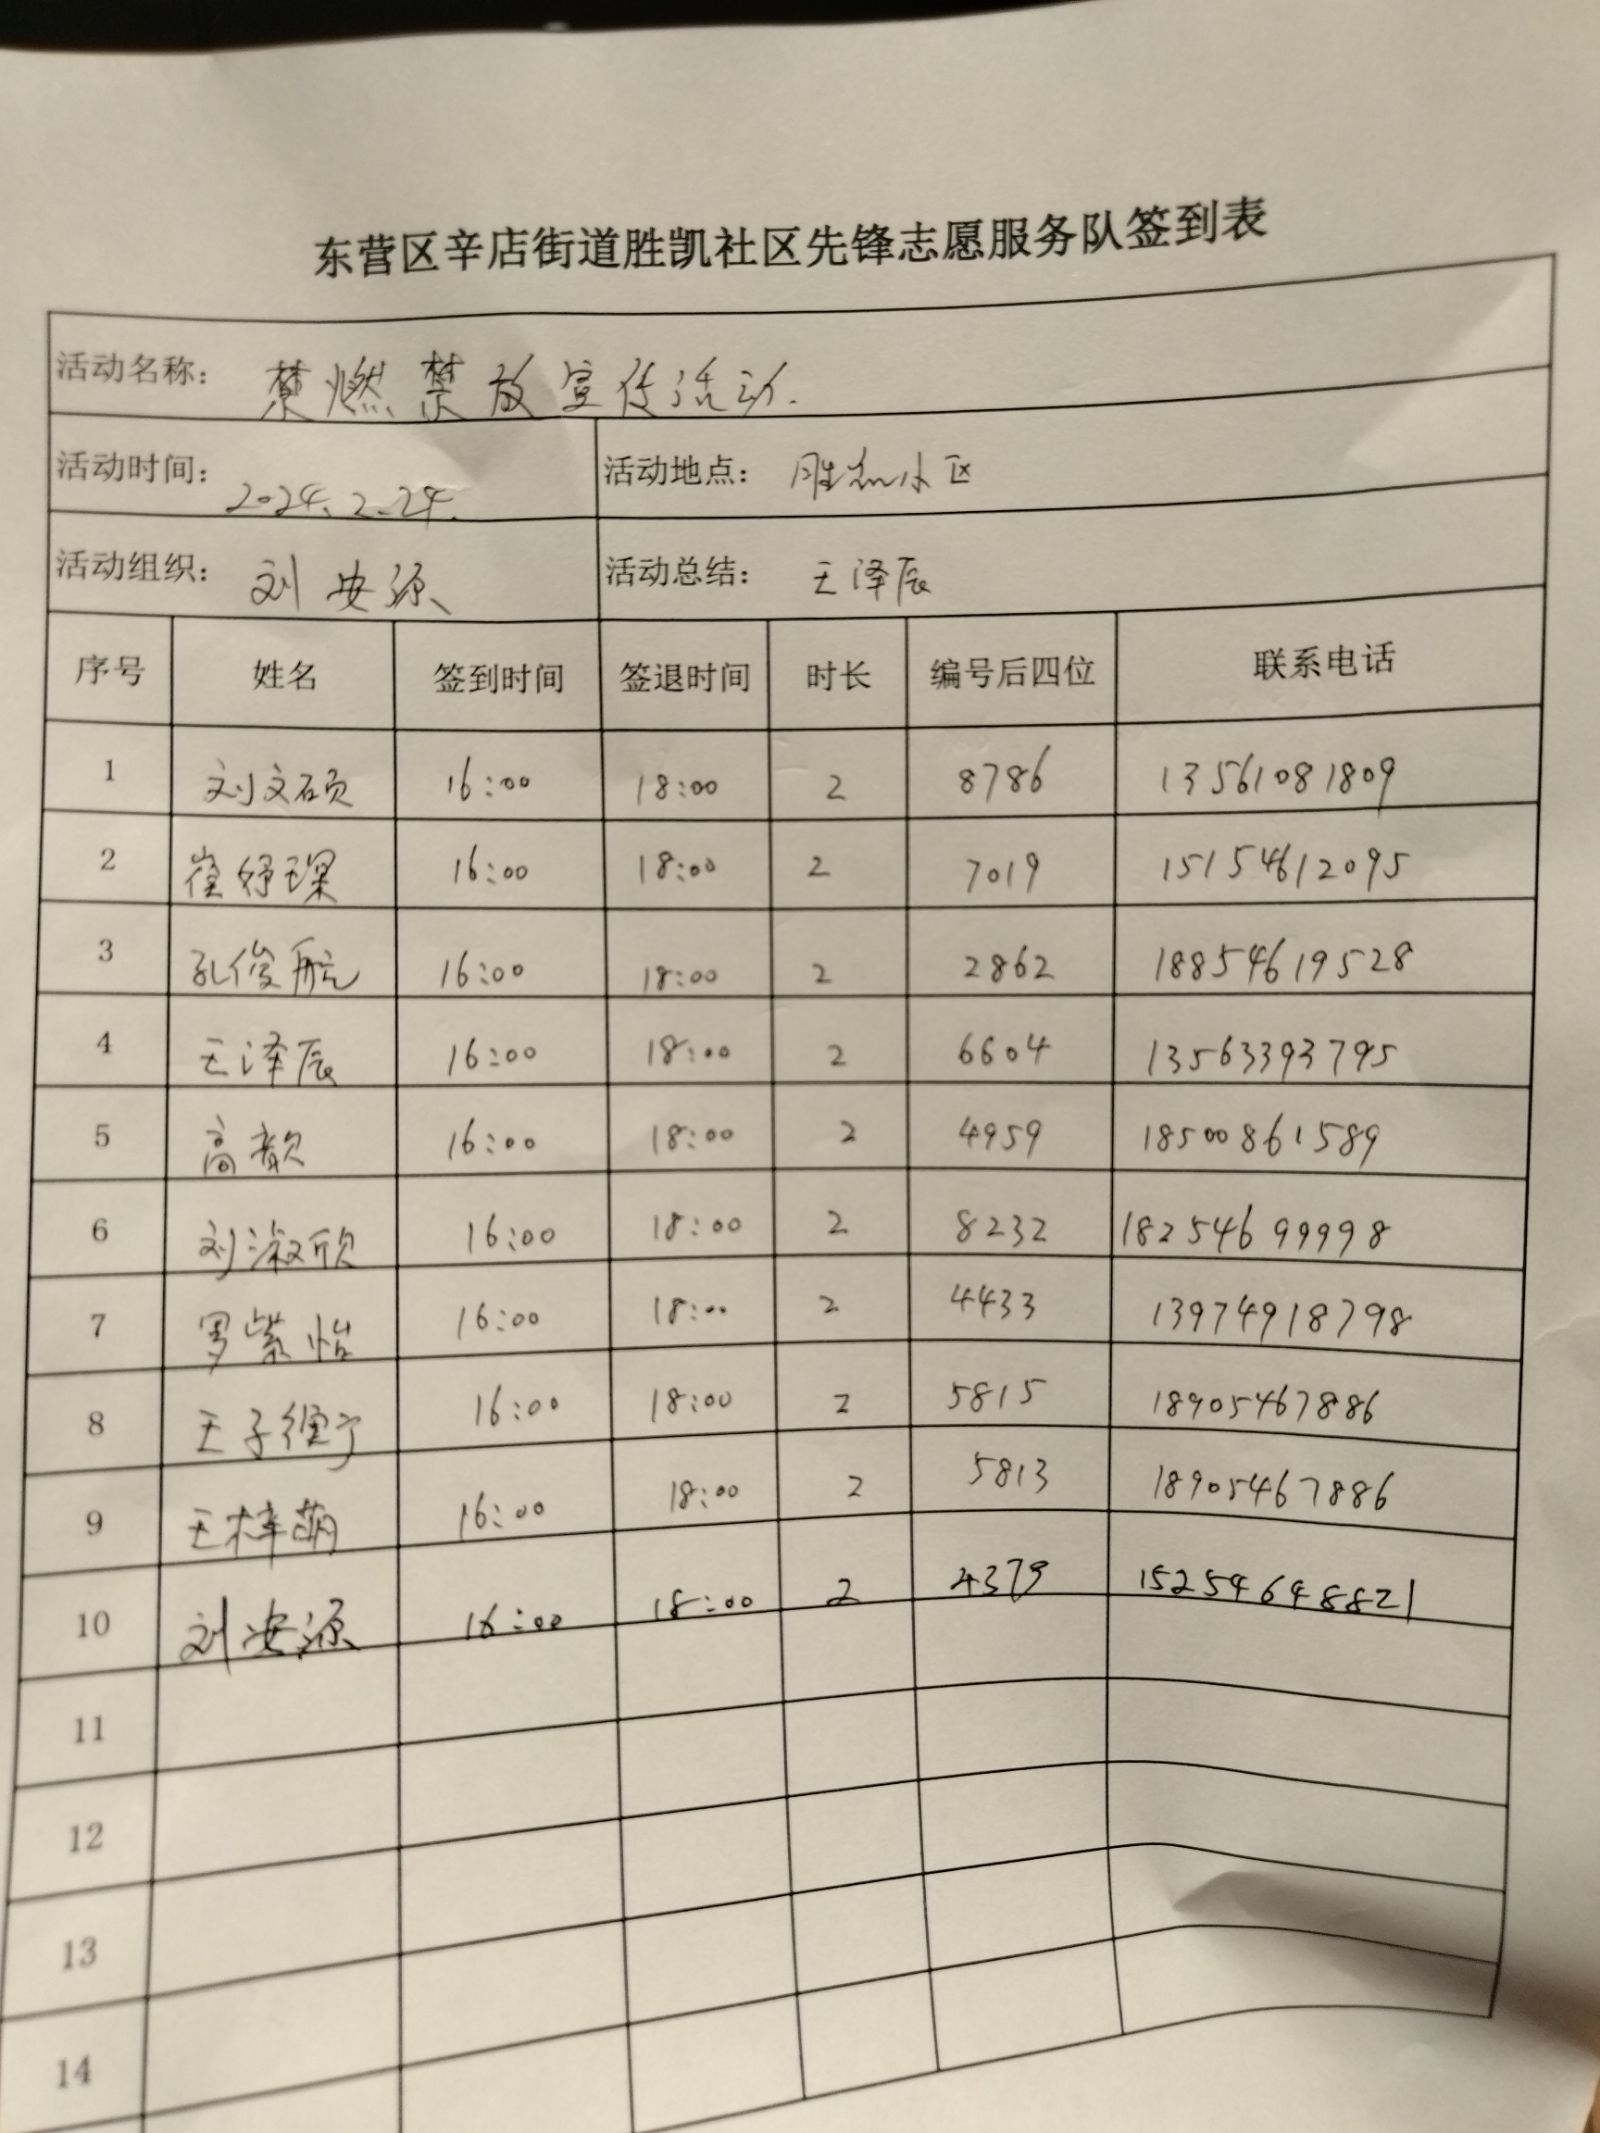 东营区辛店街道胜凯社区先锋志愿服务队签到表
活动名称： 禁燃禁放宣传活动.
活动时间： 2024.2.24. 活动地点： 胜凯小区
活动组织： 刘安源 活动总结： 王泽辰
序号 姓名 签到时间 签退时间 时长 编号后四位 联系电话
1 刘文硕 16:00 18:00 2 8786 13561081809
2 崔妤琛 16:00 18:00 2 7019 15154612095
3 孔俊航 16:00 18:00 2 2862 18854619528
4 王泽辰 16:00 18:00 2 6604 13563393795
5 高歆 16:00 18:00 2 4959 18500861589
6 刘淑欣 16:00 18:00 2 8232 18254699998
7 罗紫怡 16:00 18:00 2 4433 13974918798
8 王子 16:00 18:00 2 5815 18905467886
9 王梓萌 16:00 18:00 2 5813 18905467886
10 刘安源 16:00 18:00 2 4379 15254648821
11
12
13
14